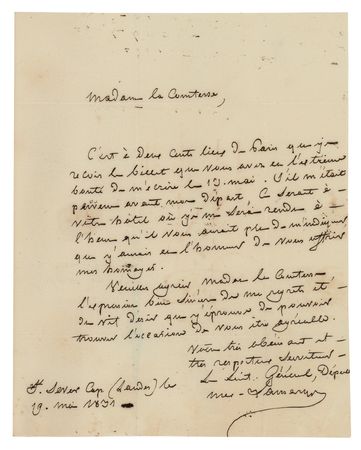 Madame la Comtesse,
C'est à deux cents lieues de Paris que je
reçois le billet que vous avez eu l'extrême
bonté de m'écrire le 13 mai. S'il m'était
parvenu avant mon départ, c'eserait à
votre hôtel où je me serais rendu à
l'heure qu'il vous aurait plu de m'indiquer
que j'aurais eu l'honneur de vous offrir
mes hommages.
Veuillez agréer madame la Comtesse
l'expression bien sincère de mes regrets et
du vif désir que j'éprouve de pouvoir
trouver l'occasion de vous être agréable.
Votre très obéissant et
très respectueux serviteur
Le Lieut. Général, Député
St. Sever Cap (Landes) le
19. mai 1831
Lamarque